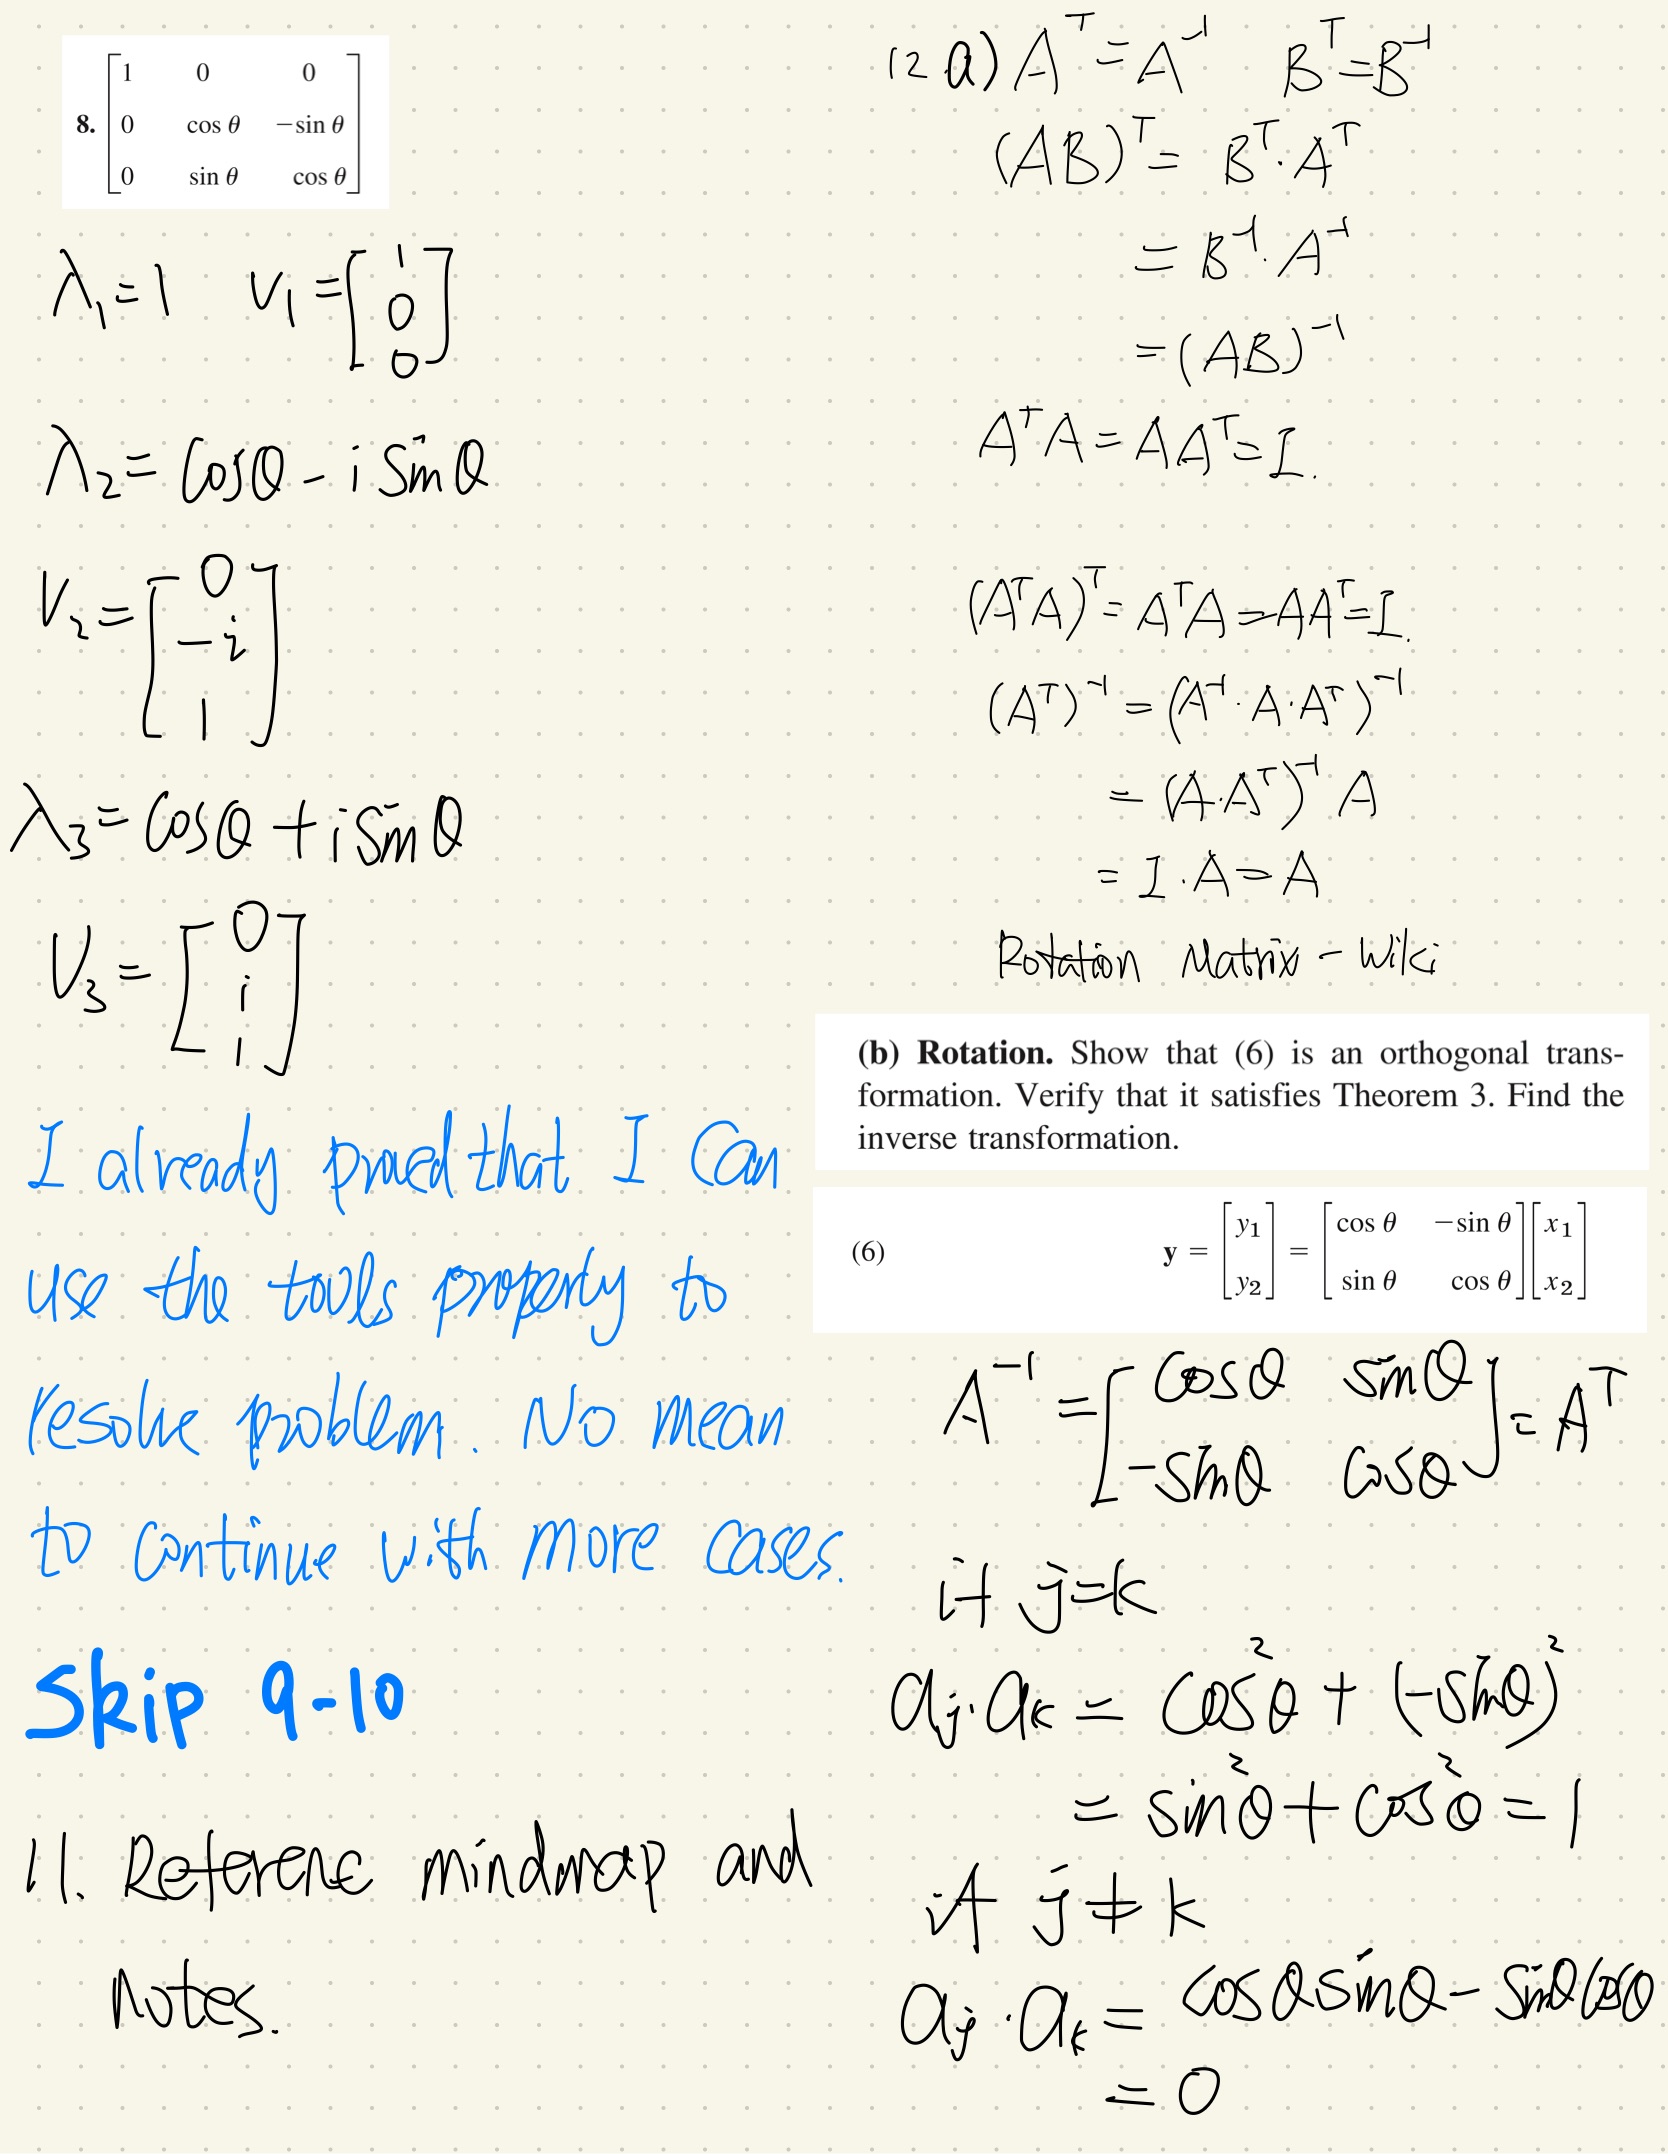 8. [1 0 0
0 cos θ −sin θ
0 sin θ cos θ]
λ₁=1 V₁=[1
0
0]
λ₂=cosθ-isinθ
V₂=[0
-i
1]
λ₃=cosθ+isinθ
V₃=[0
i
1]
I already proved that I can
use the tools property to
resolve problem. No mean
to continue with more cases.
Skip 9-10
11. Reference mindmap and
notes.
12 a) Aᵀ=A⁻¹ Bᵀ=B⁻¹
(AB)ᵀ= Bᵀ·Aᵀ
= B⁻¹·A⁻¹
=(AB)⁻¹
AᵀA=AAᵀ=I.
(AᵀA)ᵀ=AᵀA=AAᵀ=I.
(Aᵀ)⁻¹=(A⁻¹·A·Aᵀ)⁻¹
=(A·Aᵀ)⁻¹A
=I·A=A
Rotation Matrix - Wiki
(b) Rotation. Show that (6) is an orthogonal trans-
formation. Verify that it satisfies Theorem 3. Find the
inverse transformation.
(6) y = [y₁ = [cos θ −sin θ [x₁
y₂] sin θ cos θ] x₂]
A⁻¹=[cosθ sinθ
-sinθ cosθ]=Aᵀ
if j=k
aⱼ·aₖ= cos²θ+(-sinθ)²
= sin²θ+cos²θ=1
if j≠k
aⱼ·aₖ= cosθsinθ-sinθcosθ
=0